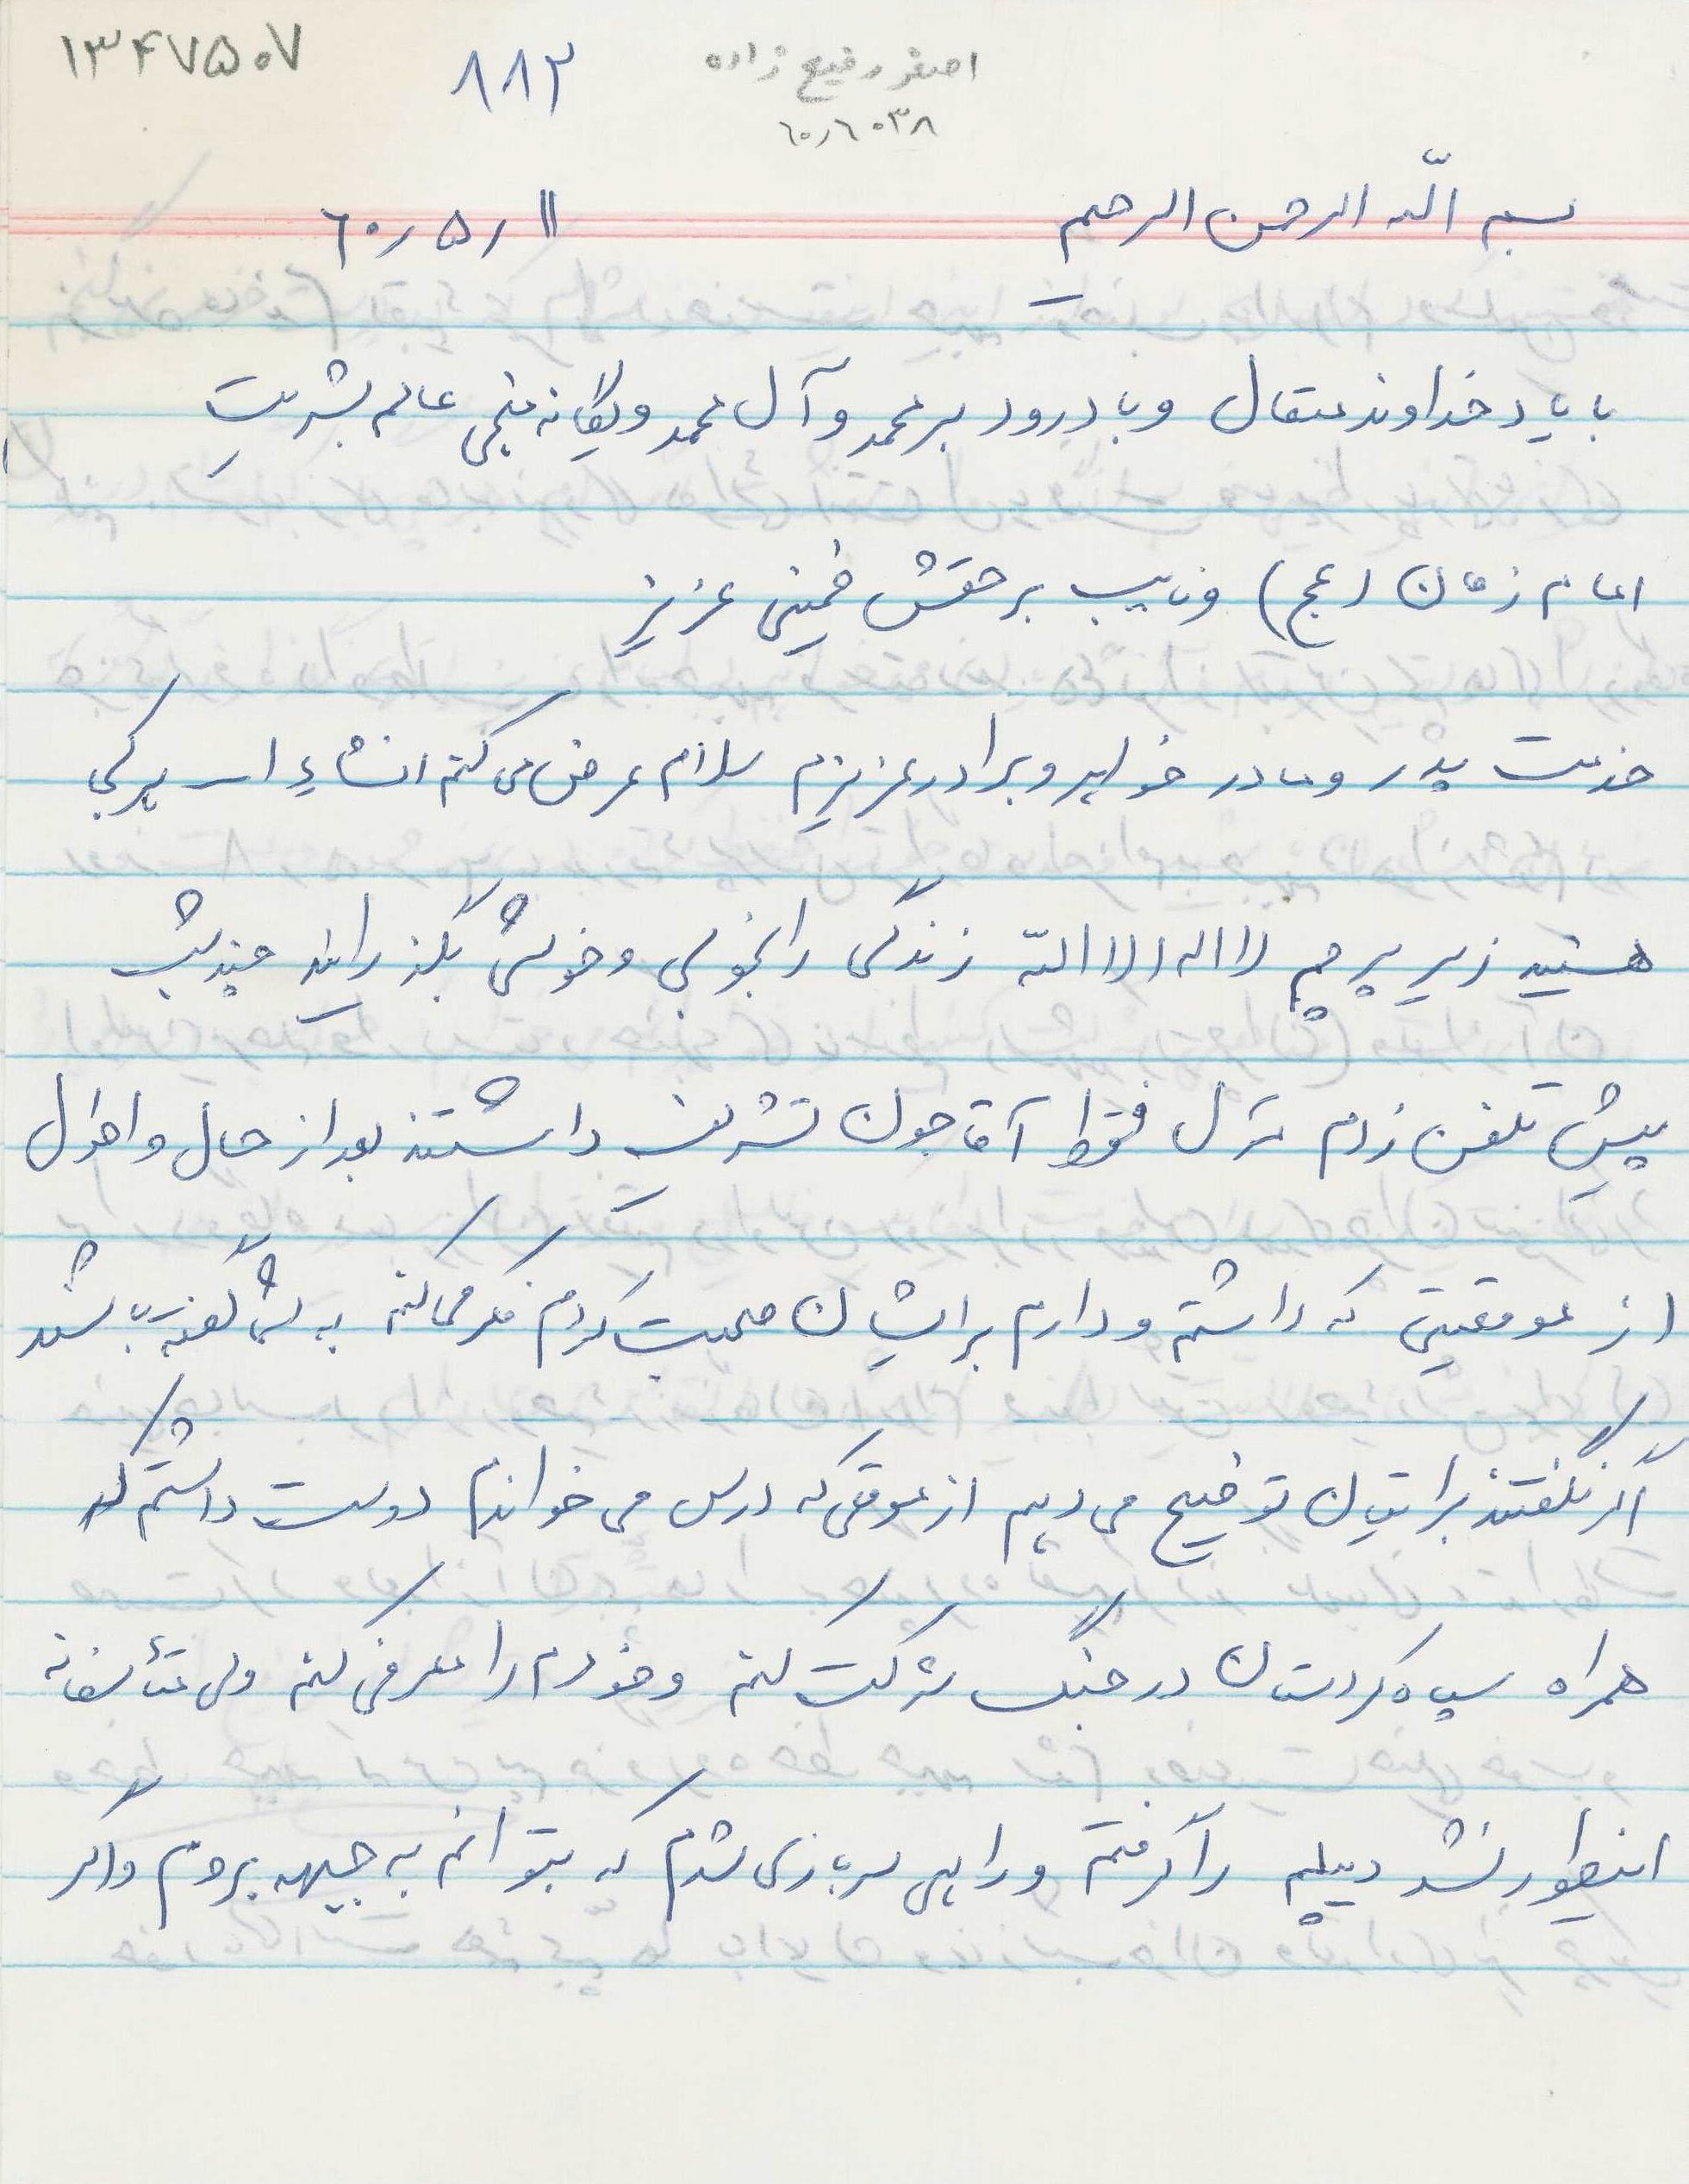 ۱۳۴۷۵۰۷
۸۸۳
اصغر رفیع زاده
۶۰٫۶۰۳۸
بسم الله الرحمن الرحیم
۱۱ ر ۵ ر ۶۰
با یاد خداوند متعال و با درود بر محمد و آل محمد و یگانه منجی عالم بشریت
امام زمان (عج) و نایب بر حقش خمینی عزیز
خدمت پدر و مادر خواهر و برادر عزیزم سلام عرض می کنم انشاء ا... هر کجا
هستید زیر پرچم لا اله الا الله زندگی را بخوبی و خوشی بگذرانید چند شب
پیش تلفن زدم منزل فقط آقاجون تشریف داشتند بعد از حال و احوال
از موقعیتی که داشتم و دارم برایشان صحبت کردم فکر می کنم به شما گفته باشند
اگر نگفتند برایتان توضیح می دهم از موقعی که درس می خواندم دوست داشتم که
همراه سپاه کردستان در جنگ شرکت کنم و خودم را معرفی کنم ولی متأسفانه
اینطور نشد دیپلم را گرفتم و راهی سربازی شدم که بتوانم به جبهه بروم و اگر